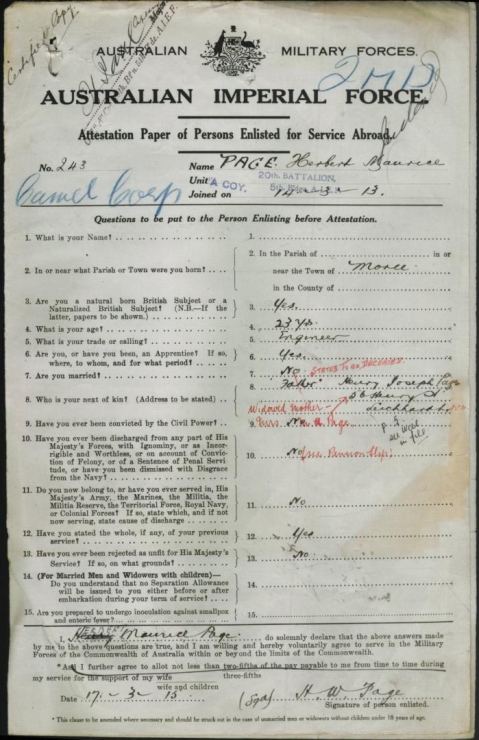 Certified Copy
AUSTRALIAN MILITARY FORCES.
AUSTRALIAN IMPERIAL FORCE.
Attestation Paper of Persons Enlisted for Service Abroad.
No. 243 Name PAGE Herbert Maurice
Camel Corps
Unit A COY. 20th BATTALION,
Joined on 14-3-15.
Questions to be put to the Person Enlisting before Attestation.
1. What is your Name? 1.
2. In or near what Parish or Town were you born? 2. In the Parish of in or
near the Town of Moree
in the County of
3. Are you a natural born British Subject or a
Naturalized British Subject? (N.B.—If the
latter, papers to be shown.) 3. Yes.
4. What is your age? 4. 23 yrs.
5. What is your trade or calling? 5. Engineer
6. Are you, or have you been, an Apprentice? If so,
where, to whom, and for what period? 6. Yes.
7. Are you married? 7. No
STATED TO BE DECEASED
8. Who is your next of kin? (Address to be stated) 8. "Father" Henry Joseph Page
56 Henry St
Leichhardt
Widowed mother
Mrs. M. A. Page
9. Have you ever been convicted by the Civil Power? 9. No
10. Have you ever been discharged from any part of His
Majesty's Forces, with Ignominy, or as Incor-
rigible and Worthless, or on account of Conviction
of Felony, or of a Sentence of Penal Servi-
tude, or have you been dismissed with Disgrace
from the Navy? 10. No
(see Pension Slip)
11. Do you now belong to, or have you ever served in, His
Majesty's Army, the Marines, the Militia, the
Militia Reserve, the Territorial Force, Royal Navy,
or Colonial Forces? If so, state which, and if not
now serving, state cause of discharge 11. No
12. Have you stated the whole, if any, of your previous
service? 12. Yes
13. Have you ever been rejected as unfit for His Majesty's
Service? If so, on what grounds? 13. No.
14. (For Married Men and Widowers with children)—
Do you understand that no Separation Allowance
will be issued to you either before or after
embarkation during your term of service? 14.
15. Are you prepared to undergo inoculation against smallpox
and enteric fever? 15.
I, Maurice Page, do solemnly declare that the above answers made
by me to the above questions are true, and I am willing and hereby voluntarily agree to serve in the Military
Forces of the Commonwealth of Australia within or beyond the limits of the Commonwealth.
*And I further agree to allot not less than two-fifths of the pay payable to me from time to time during
three-fifths
my service for the support of my wife
wife and children
Date 17-3-15 (Sgd) H. W. Page
Signature of person enlisted.
* This clause to be amended where necessary and should be struck out in the case of unmarried men or widowers without children under 18 years of age.